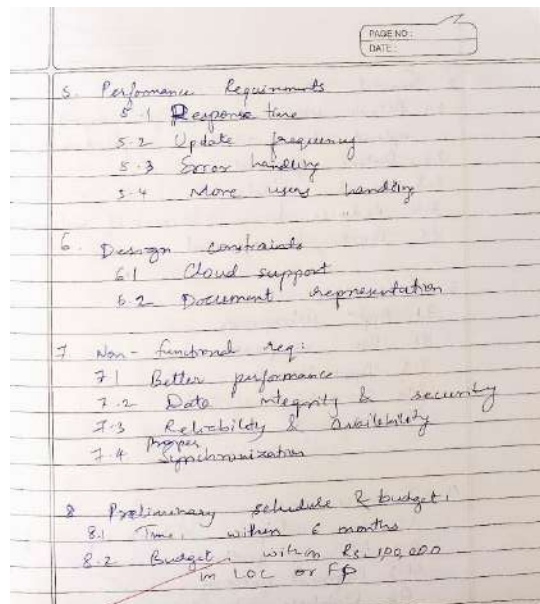 PAGE NO:
DATE:
5. Performance Requirements
5.1 Response time
5.2 Update frequency
5.3 Error handling
5.4 More users handling
6. Design constraints
6.1 Cloud support
6.2 Document representation
7. Non-functional req:
7.1 Better performance
7.2 Data integrity & security
7.3 Reliability & availability
7.4 Proper Synchronization
8 Preliminary schedule & budget:
8.1 Time: within 6 months
8.2 Budget: within Rs. 100,000
in LOC or FP